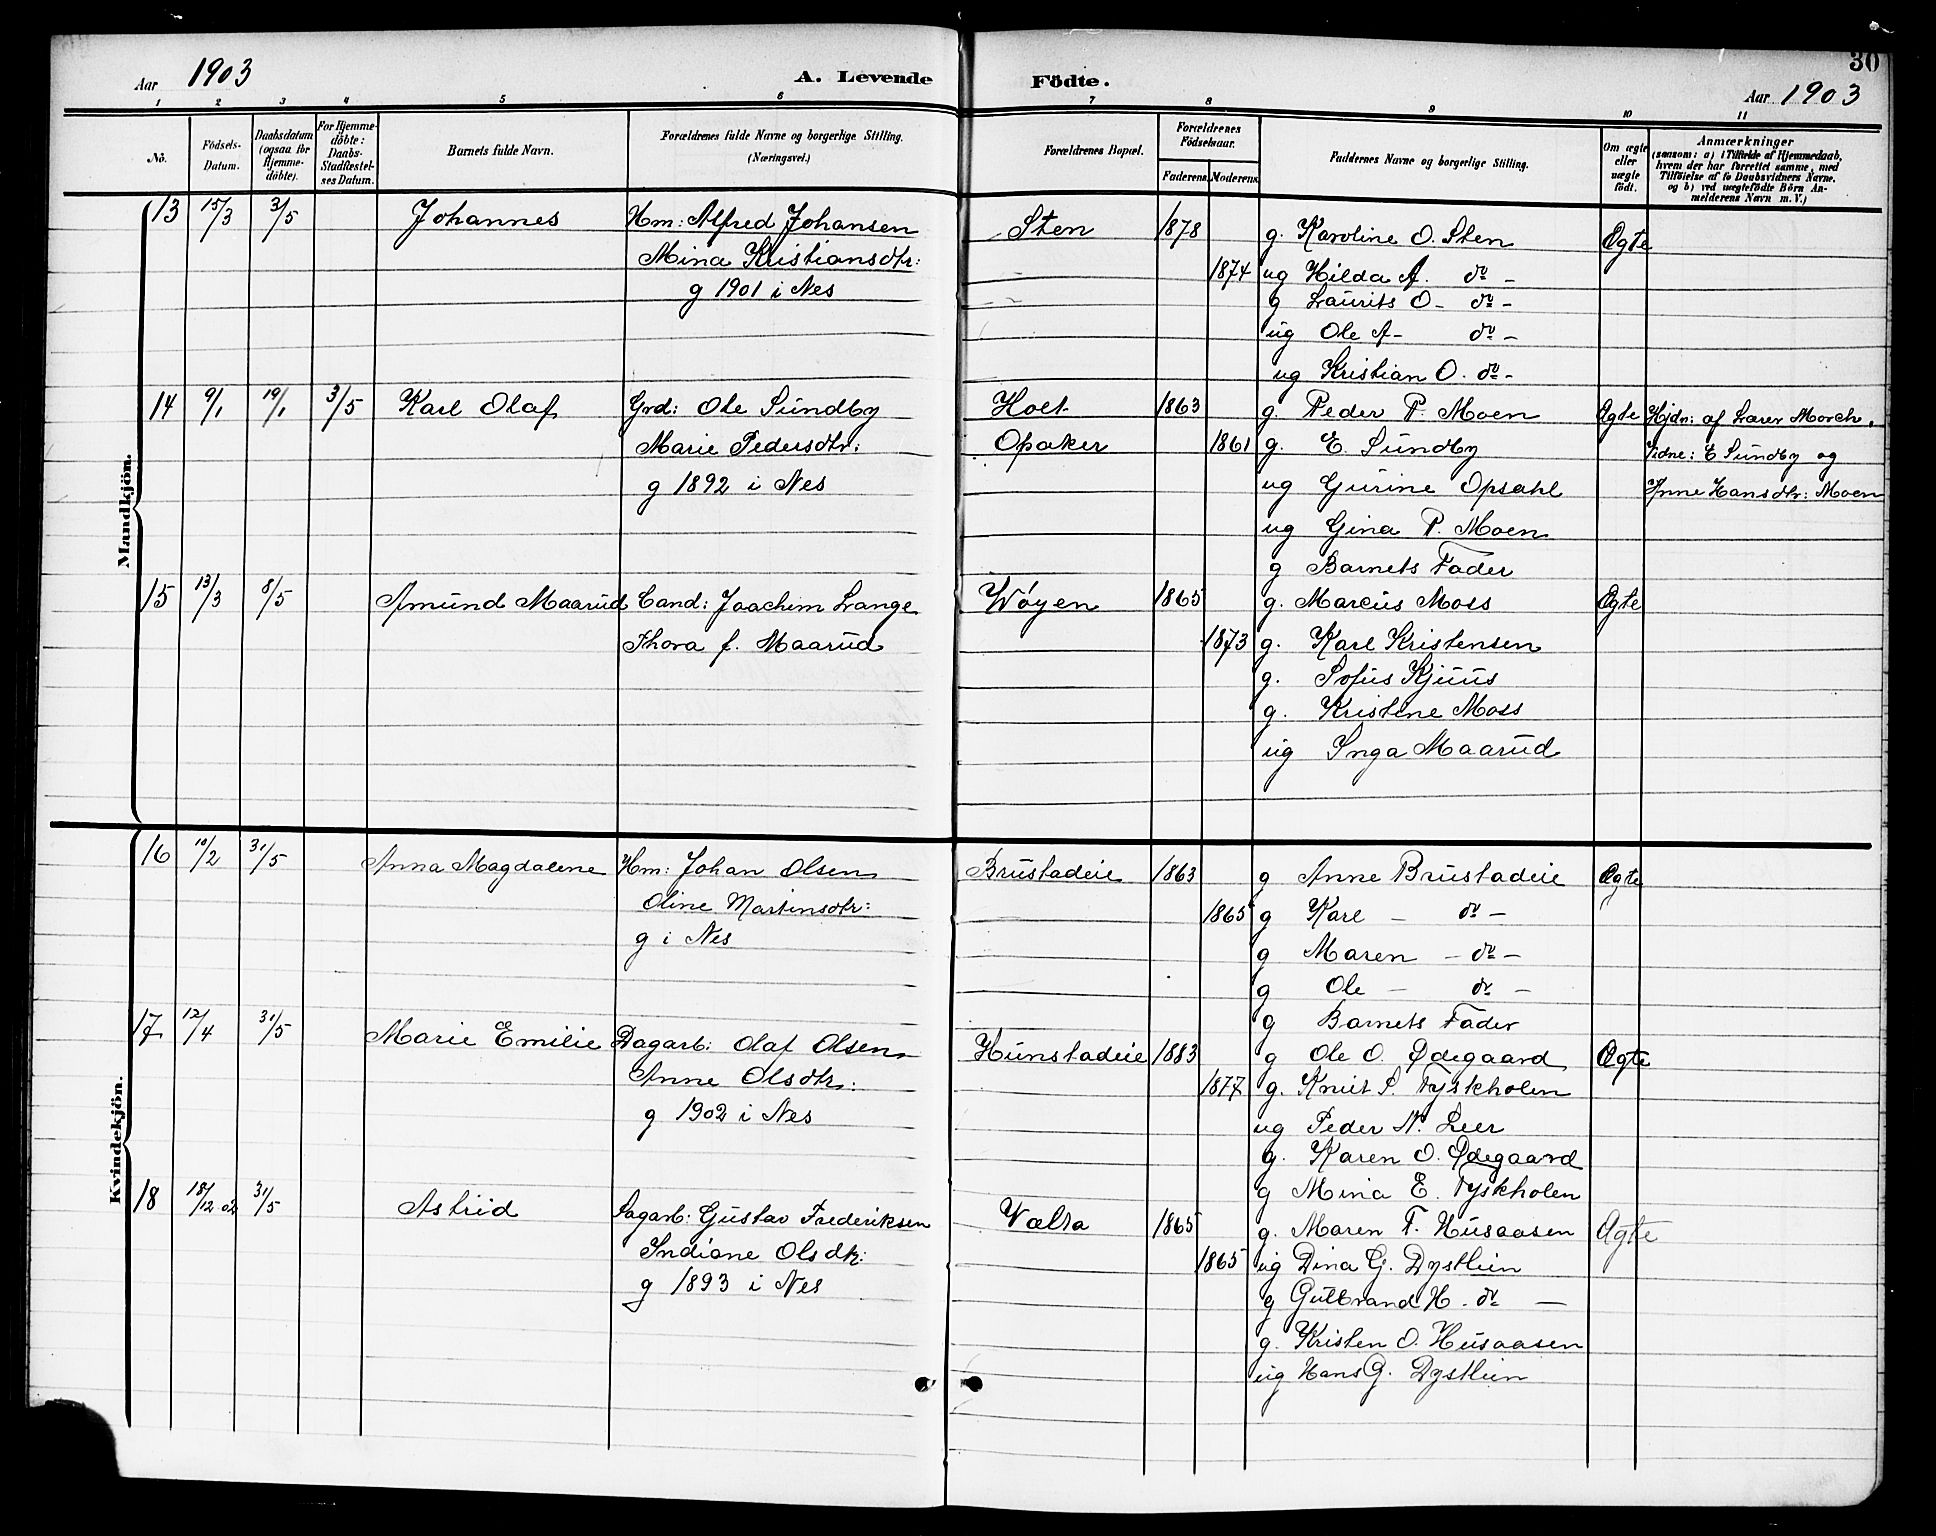 30
Aar 1903 A. Levende Födte. Aar 1903
1 2 3 4 5 6 7 8 9 10 11
No. Födsels-Datum. Daabsdatum (ogsaa for Hjemme-döbte). For Hjemme-döbte: Daabs-Stadfæstel-ses Datum. Barnets fulde Navn. Forældrenes fulde Navne og borgerlige Stilling. (Næringsvei.) Forældrenes Bopæl. Forældrenes Födselsaar. Faderens. Moderens. Faddernes Navne og borgerlige Stilling. Om ægte eller uægte födt. Anmærkninger (saasom: a) i Tilfælde af Hjemmedaab, hvem der har forrettet samme, med Tilföielse af to Daabsvidners Navne, og b) ved uægtefödte Börn An-melderens Navn m. V.)
Mandkjön.
13 15/3 3/5 Johannes Hm: Alfred Johansen Sten 1878 g. Karoline O. Sten Ægte
Mina Kristiansdtr: 1874 ug Hilda A. do -
g 1901 i Nes g Laurits O- do -
ug Ole A- do -
ug Kristian O. do -
14 9/1 19/1 3/5 Karl Olaf Grd: Ole Sundby Holt 1863 g. Peder P. Moen Ægte Hjdr: af Lærer Morch.
Marie Pedersdtr: Opaker 1861 g. E. Sundby Vidne: E Sundby og
g 1892 i Nes ug Gurine Opsahl Anne Hansdtr: Moen
ug Gina P. Moen
g Barnets Fader
15 13/3 8/5 Amund Maarud Cand: Joachim Lange Wöyen 1865 g. Marcus Moss Ægte
Thora f. Maarud 1873 g. Karl Kristensen
g. Sofus Kjuus
g. Kristine Moss
ug Inga Maarud
Kvindekjön.
16 10/2 31/5 Anna Magdalene Hm: Johan Olsen Brustadeie 1863 g Anne Brustadeie Ægte
Oline Martinsdtr: 1865 g Karl - do -
g i Nes g Maren - do -
g Ole - do -
g Barnets Fader
17 12/4 31/5 Marie Emilie Dagarb: Olaf Olsen Hunstadeie 1883 g Ole O. Ødegaard Ægte
Anne Olsdtr: 1877 g. Knut S. Tyskholen
g 1902 i Nes ug Peder N. Leer
g. Karen O. Ødegaard
g Mina E. Tyskholen
18 18/12 02 31/5 Astrid Dagarb: Gustav Frederiksen Vælta 1865 g. Maren F. Husaasen Ægte
Indiane Olsdtr: 1865 ug Dina G. Dystlien
g 1893 i Nes g Gulbrand H. do -
g. Kristen O. Husaasen
ug Hans G. Dystlien